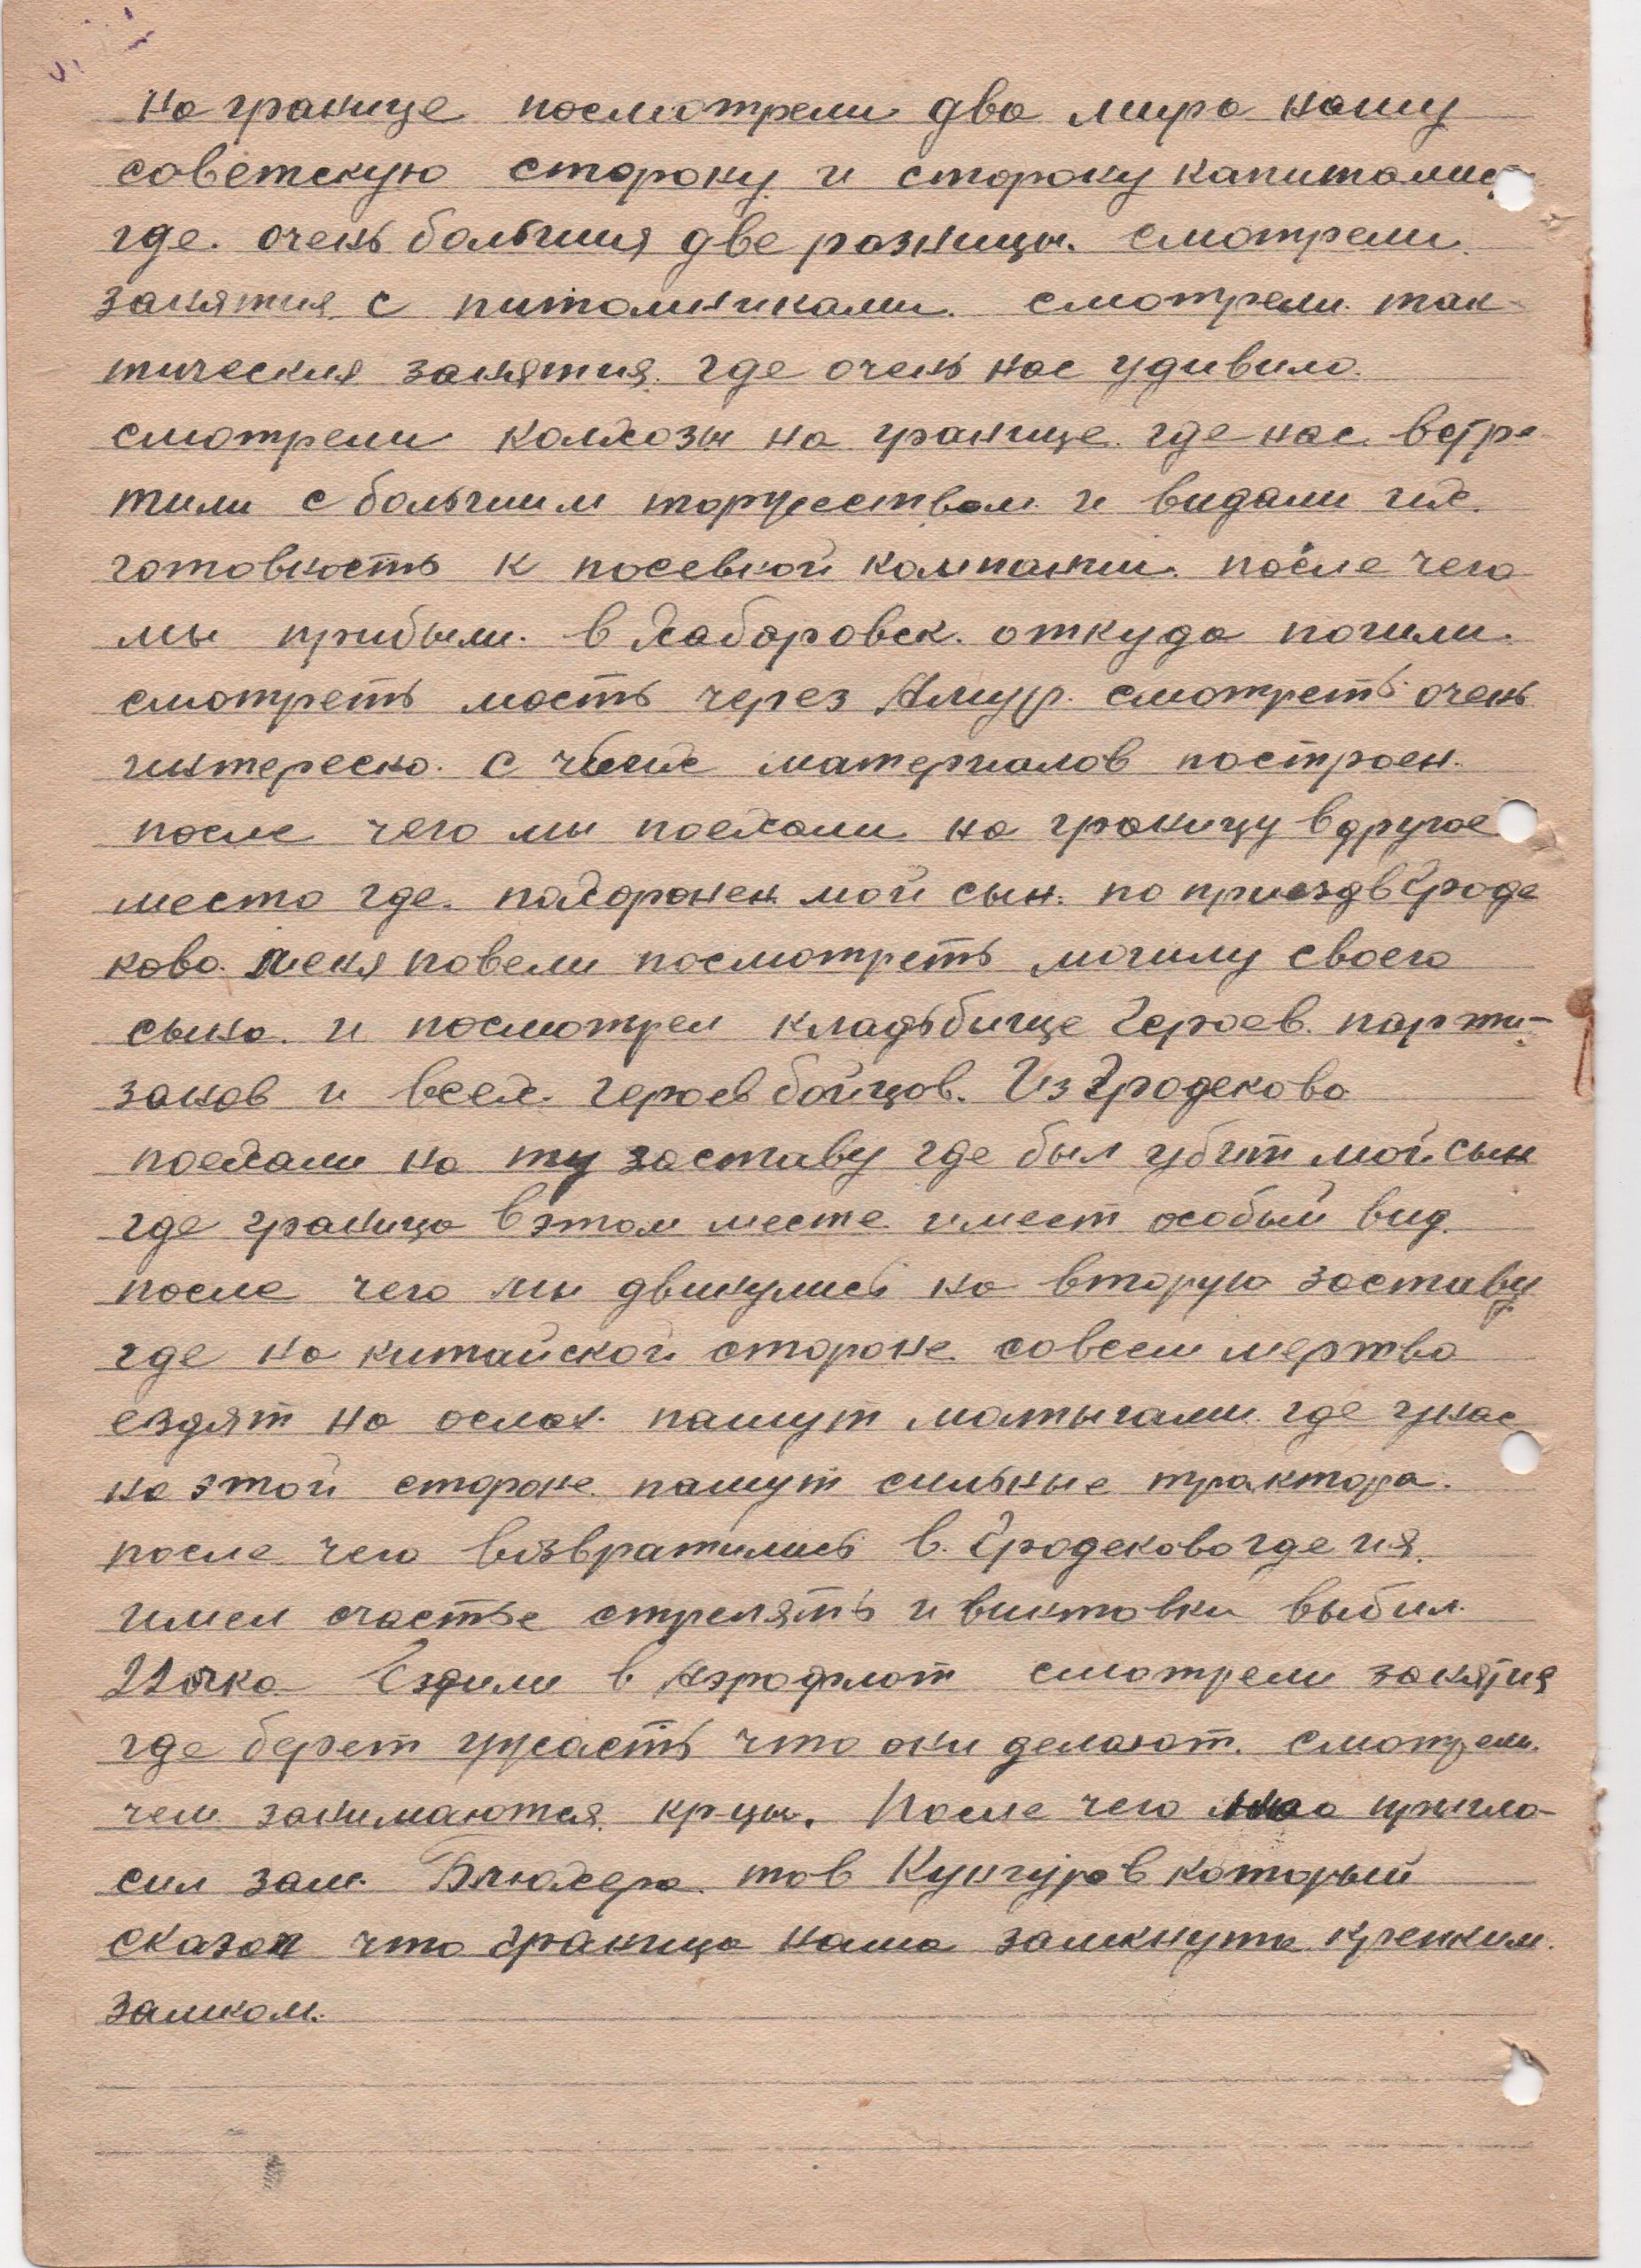 на границе посмотрели два мира нашу
советскую сторону и сторону капиталис
где. очень большия две разницы. смотрели.
занятия с питомниками. смотрели. так-
тическия занятия. где очень нас удивило.
смотрели колхозы на границе. где нас. встре-
тили с большим торжеством. и видали их.
готовность к посевной компании. после чего
мы прибыли. в Хабаровск. откуда пошли.
смотреть мость через Амур. смотреть очень
интересно. с материалов построен.
после чего мы поехали на границу в другое
место где. похоронен мой сын. по приезд в Гроде
ково. меня повели посмотреть могилу своего
сына. и посмотрел кладьбище Героев. парти-
занов и всех. героев бойцов. Из Гродеково
поехали на ту заставу где был убит мой сын
где граница в этом месте имеет особый вид.
после чего мы двинулись на вторую заставу
где на китайской стороне. совсем мертво
ездят на ослах. пашут мотыгами. где унас
на этой стороне пашут сильные трактора.
после. чего возвратились в. Гродеково где ия.
имел счастье стрелять и винтовки выбил.
очка Ездили в Аэрофлот смотрели занятия
где берет ужасть что они делают. смотрели.
чем занимаются. кр-цы. После чего пригла-
сил зам. Блюхера. тов Кунгуров который
сказал что граница наша замкнута крепким.
замком.